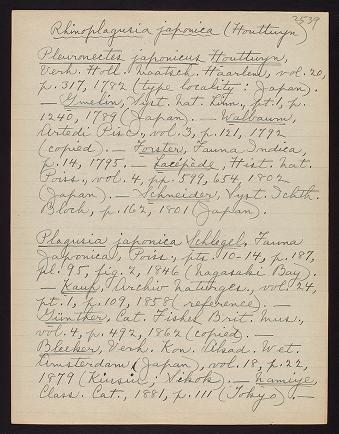 2539
Rhinoplagusia japonica (Houttuyn)
Pleuronectes japonicus Houttuyn,
Verh. Holl. Maatsch. Haarlem, vol. 20,
p. 317, 1782 (type locality: Japan).
— Gmelin, Syst. Nat. Linn., pt. 1, p.
1240, 1789 (Japan). — Walbaum,
Artedi Pisc., vol. 3, p. 121, 1792
(copied). — Forster, Fauna Indica,
p. 14, 1795. — Lacépède, Hist. Nat.
Poiss., vol. 4, pp. 599, 654 1802
(Japan). — Schneider, Syst. Ichth.
Bloch, p. 162, 1801 (Japan).
Plagusia japonica Schlegel, Fauna
Japonica, Poiss., pts. 10-14, p. 187,
pl. 95, fig. 2, 1846 (Nagasaki Bay).
— Kaup, Archiv Naturges., vol. 24,
pt. 1, p. 109, 1858 (reference). —
Günther, Cat. Fishes Brit. Mus.,
vol. 4, p. 492, 1862 (copied).
Bleeker, Verh. Kon. Akad. Wet.
Amsterdam (Japan), vol. 18, p. 22,
1879 (Kiusiu; Sikok). — Namiye,
Class. Cat., 1881, p. 111 (Tokyo). —